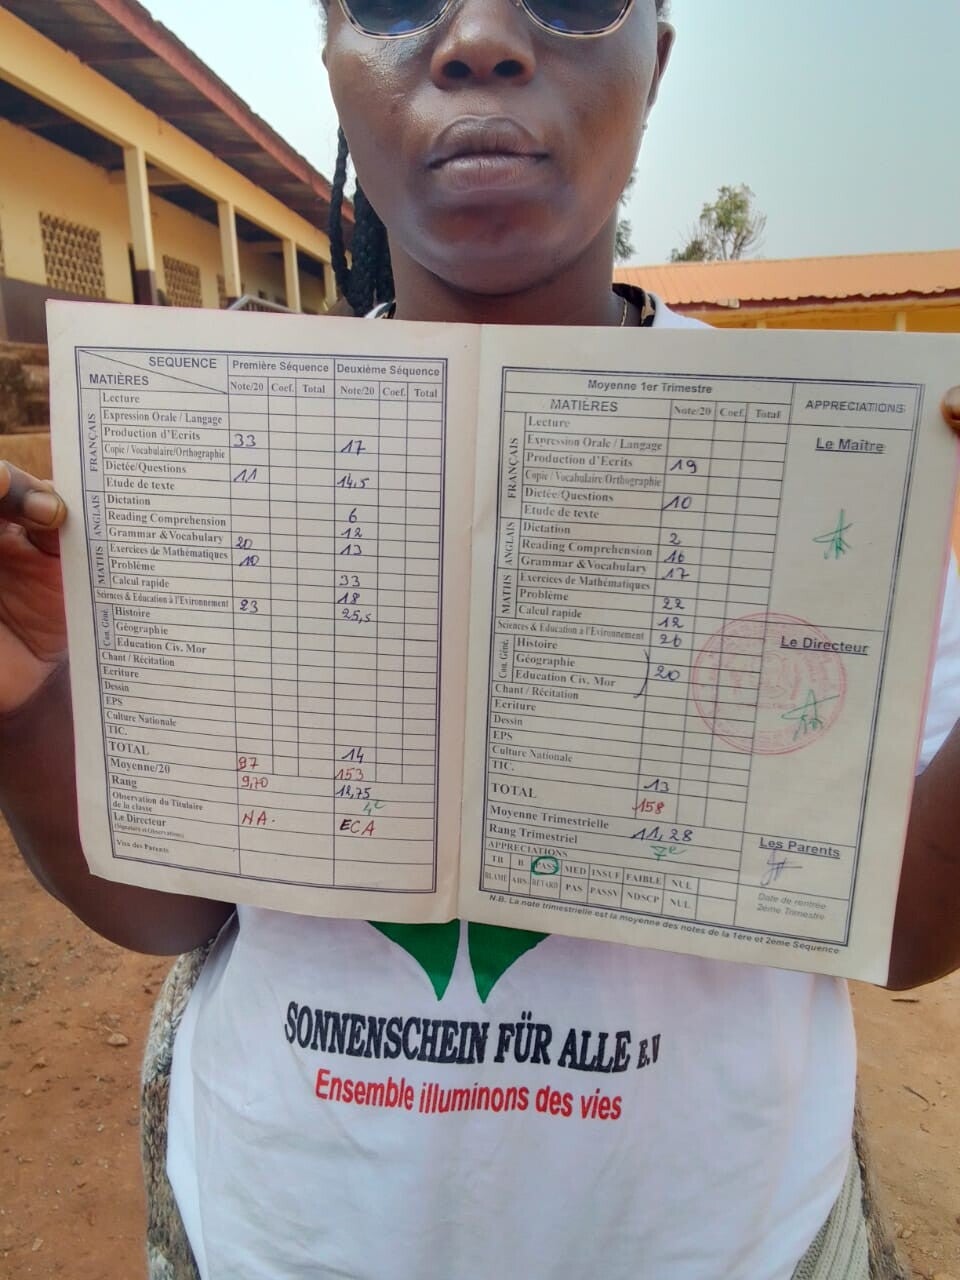 SEQUENCE Première Séquence Deuxième Séquence
MATIÈRES Note/20 Coef. Total Note/20 Coef. Total
FRANÇAIS
Lecture
Expression Orale / Langage
Production d'Ecrits 33 17
Copie / Vocabulaire/Orthographie
Dictée/Questions 11 14,5
Etude de texte
ANGLAIS
Dictation 6
Reading Comprehension 12
Grammar & Vocabulary 20 13
MATHS
Exercices de Mathématiques 10
Problème 33
Calcul rapide 18
Sciences & Education à l'Evironnement 23 25,5
Con. Géné.
Histoire
Géographie
Education Civ. Mor
Chant / Récitation
Ecriture
Dessin
EPS
Culture Nationale
TIC. 14
TOTAL 97 153
Moyenne/20 9,70 12,75
Rang 4e
Observation du Titulaire
de la classe NA. ECA
Le Directeur
(Signature et Observations)
Visa des Parents
Moyenne 1er Trimestre APPRECIATIONS
MATIÈRES Note/20 Coef. Total
FRANÇAIS
Lecture
Expression Orale / Langage
Production d'Ecrits 19
Copie / Vocabulaire/Orthographie
Dictée/Questions 10
Etude de texte
ANGLAIS
Dictation 2
Reading Comprehension 16
Grammar & Vocabulary 17
MATHS
Exercices de Mathématiques
Problème 22
Calcul rapide 12
Sciences & Education à l'Evironnement 26
Con. Géné.
Histoire
Géographie 20
Education Civ. Mor
Chant / Récitation
Ecriture
Dessin
EPS
Culture Nationale
TIC. 13
TOTAL 158
Moyenne Trimestrielle 11,28
Rang Trimestriel 7e
APPRECIATIONS
TB B PASS MED INSUF FAIBLE NUL
BLAMÉ ABS. RETARD PAS PASSV NDSCP NUL
Le Maître
Le Directeur
Les Parents
Date de rentrée
2eme Trimestre
N.B. La note trimestrielle est la moyenne des notes de la 1ère et 2eme Séquence
SONNENSCHEIN FÜR ALLE E.V
Ensemble illuminons des vies